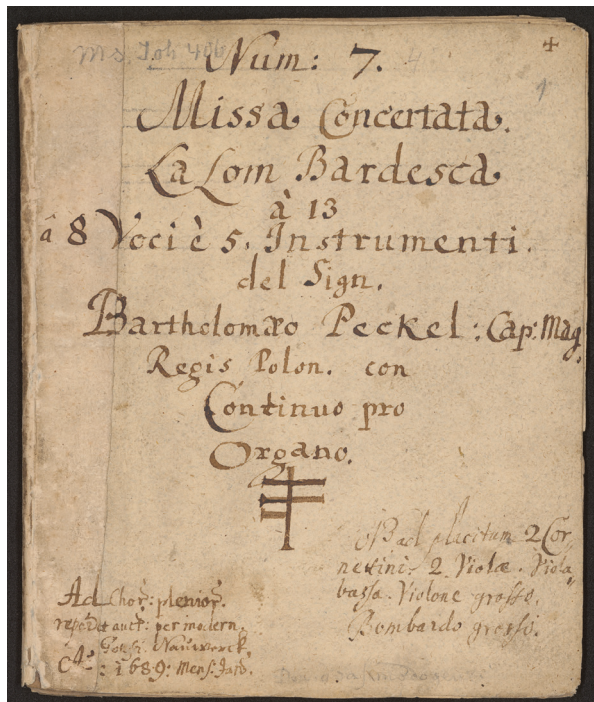 Ms. Joh 406
Num: 7.
1
Missa Concertata.
La Lom Bardesca
à 13
â 8 Voci è 5. Instrumenti.
del Sign.
Bartholomæo Peckel: Cap: Mag.
Regis Polon. con
Continuo pro
Organo.
ad placitum 2 Cor,
nettini. 2. Violæ. Viola
bassa. Violone grosso.
Bombardo grosso.
Ad Chor: plenior.
per modern.
Nauwerck
C4: 1689: